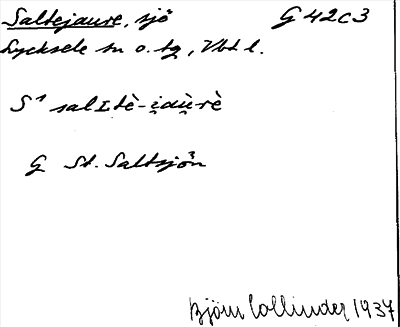 Saltejaure, sjö G 42c3
Lycksele sn o. tg, Vbtl.
S¹ salɪtè-i̯aù̯rè
G St. Saltsjön
Björn Collinder 1937